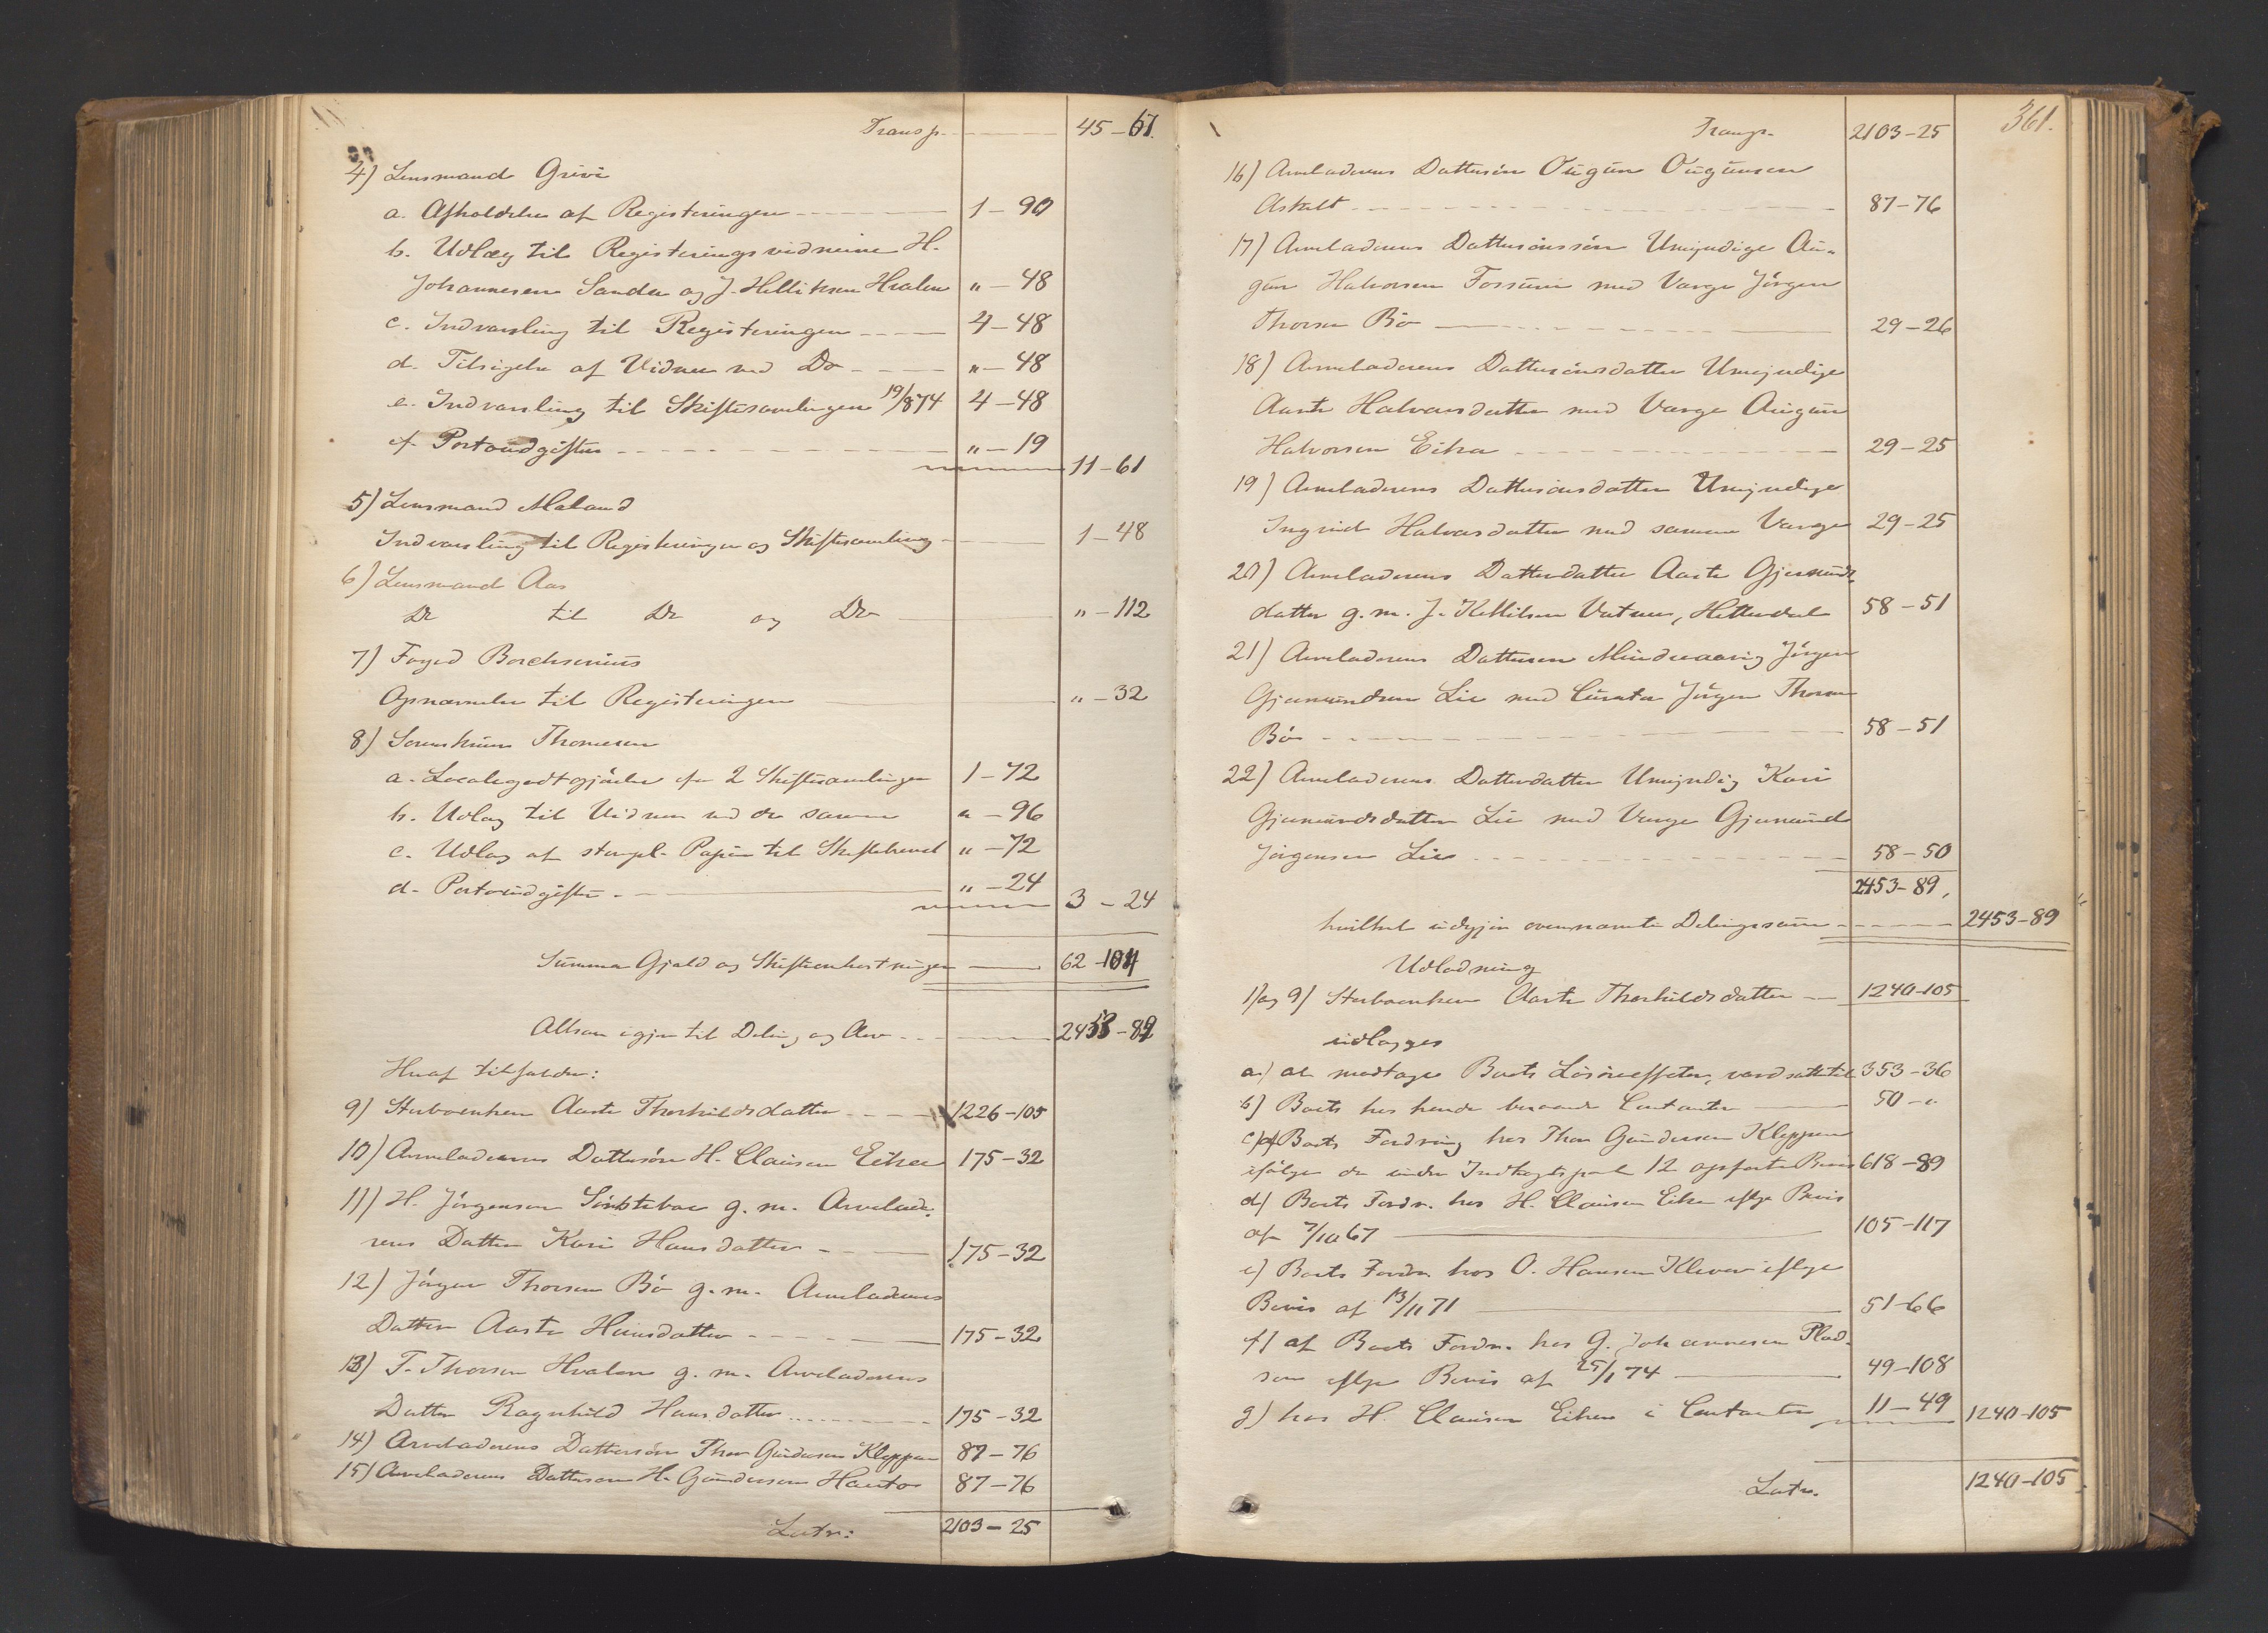 Transp. 45-67.
4) Lensmand Grivi
a. Afholdelse af Registeringen 1-90
b. Udlæg til Registeringsvidnerne H.
Johannesen Sanda og J. Kittilsen Hvalen "-48
c. Indvarsling til Registeringen 4-48
d. Tilsigelse af Vidner ved Do "-48
e. Indvarsling til Skiftesamlingen 19/8 74 4-48
f. Portoudgifter "-19
11-61
5) Lensmand Aaland
Indvarsling til Registeringen og Skiftesamling 1-48
6) Lensmand Aas
Do til Do og Do "-112
7) Foged Borchsenius
Opnævnelse til Registeringen "-32
8) Sorenskriver Thomesen
a. Localegodtgjørelse for 2 Skiftesamlinger 1-72
b. Udlæg til Vidner ved de samme "-96
c. Udlæg af stempl. Papir til Skiftebrevet "-72
d. Portoudgifter "-24
3-24
Summa Gjæld og Skifteomkostninger 62-104
Altsaa igjen til Deling og Arv 2453-89
Heraf tilfalder:
9) Sterboenken Aaste Thorkildsdatter 1226-105
10) Arveladerens Dattersön H. Clausen Eika 175-32
11) H. Jörgensen g. m. Arvelade-
rens Datter Kari Hansdatter 175-32
12) Jörgen Thorsen Bö g. m. Arveladerens
Datter Aaste Hansdatter 175-32
13) T. Thorsen Hvalen g. m. Arveladerens
Datter Ragnhild Hansdatter 175-32
14) Arveladerens Dattersön Thor Gundersen Kleppen 87-76
15) Arveladerens Dattersön H. Gundersen Hantos 87-76
Latr: 2103-25
361.
Transp. 2103-25
16) Arveladerens Dattersön Ougun Ougunsen
Askilt 87-76
17) Arveladerens Dattersönssön Umyndige Au-
gun Halvorsen Fossum med Værge Jörgen
Thorsen Bö 29-26
18) Arveladerens Dattersönsdatter Umyndige
Aaste Halvorsdatter med Værge Augun
Halvorsen Eika 29-25
19) Arveladerens Dattersönsdatter Umyndige
Ingrid Halvorsdatter med samme Værge 29-25
20) Arveladerens Datterdatter Aaste Gjermunds-
datter g. m. J. Kittilsen Vatnar, Hitterdal 58-51
21) Arveladerens Dattersön Mindreaarig Jörgen
Gjermundsen Lie med Curator Jörgen Thorsen
Bö 58-51
22) Arveladerens Datterdatter Umyndig Kari
Gjermundsdatter Lie med Værge Gjermund
Jörgensen Lie 58-50
2453-89.
hvilket udgjör ovennævnte Delingssum 2453-89
Udlodning
1) og 9) Sterboenken Aaste Thorkildsdatter 1240-105
udlægges
a) at modtage Boets Lösöreeffekter, værdsatte til 353-36
b) Boets hos hende beroende Contanter 50-"
c) af Boets Fordring hos Thor Gundersen Kleppen
ifölge de under Indtægtspost 12 opførte Bevis 618-89
d) Boets Fordr. hos H. Clausen Eika iflge Bevis
af 7/10 67 105-117
e) Boets Fordr. hos O. Hansen Klever iflge
Bevis af 13/11 71 51-66
f) af Boets Fordr. hos G. Johannesen Plad-
sen iflge Bevis af 25/1 74 49-108
g) hos H. Clausen Eika i Contanter 11-49 1240-105
Latr. 1240-105